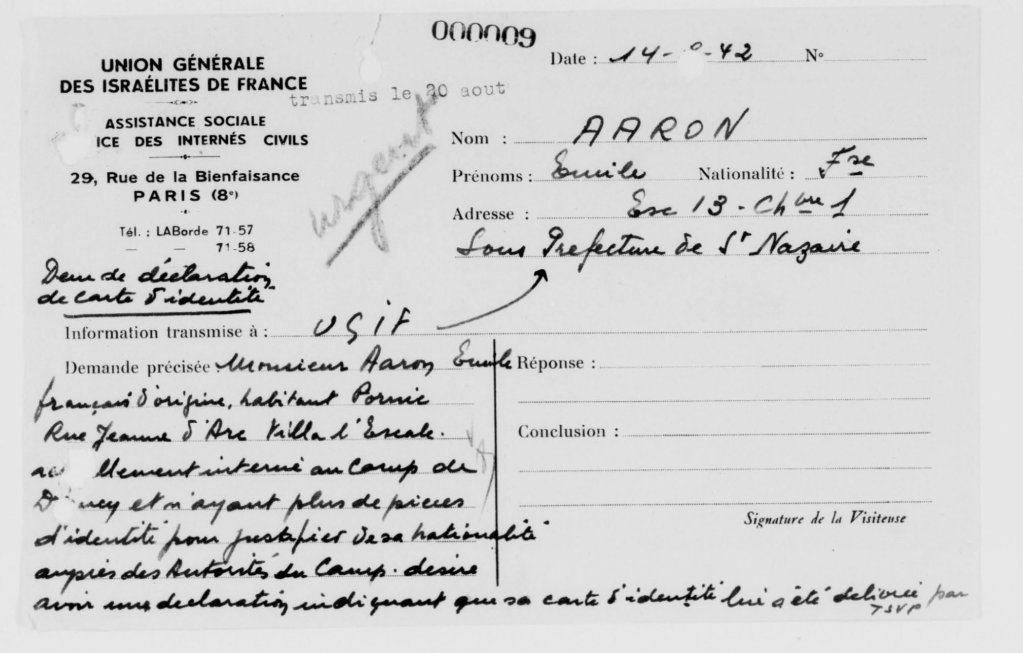 000009
UNION GÉNÉRALE
DES ISRAÉLITES DE FRANCE
ASSISTANCE SOCIALE
ICE DES INTERNÉS CIVILS
29, Rue de la Bienfaisance
PARIS (8e)
Tél. : LABorde 71-57
— — 71-58
transmis le 20 aout
urgent
Date : 14- -42 N°
Nom : AARON
Prénoms : Emile Nationalité : Fse
Adresse : Esc 13 - Chbre 1
Sous Prefecture de St Nazaire
Dem de déclaration
de carte d'identité
Information transmise à : UGIF
Demande précisée : Monsieur Aaron Emile
français d'origine, habitant Pornic
Rue Jeanne d'Arc Villa l'Escale.
ac llement interné au Camp de
D ncy et n'ayant plus de pieces
d'identité pour justifier de sa nationalité
auprès des Autorités du Camp. desire
avoir une declaration indiquant que sa carte d'identité lui a été délivrée par
TSVP
Réponse :
Conclusion :
Signature de la Visiteuse